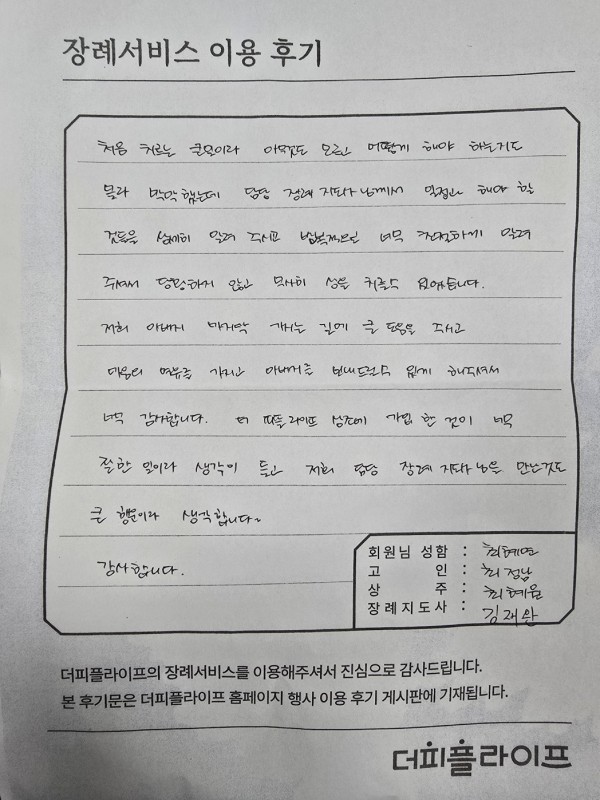 장례서비스 이용 후기
처음 치르는 큰일이라 아무것도 모르고 어떻게 해야 하는지도
몰라 막막했는데 담당 장례 지도사님께서 일정과 해야 할
것들을 상세히 알려 주시고 반복적으로 너무 친절하게 알려
주셔서 당황하지 않고 무사히 상을 치를수 있었습니다.
저희 아버지 마지막 가시는 길에 큰 도움을 주시고
마음의 여유를 가지고 아버지를 보내드릴수 있게 해주셔서
너무 감사합니다. 더 피플 라이프 상조에 가입 한 것이 너무
잘한 일이라 생각이 들고 저희 담당 장례 지도사님을 만난것도
큰 행운이라 생각합니다~
감사합니다.
회원님 성함 : 최혜연
고 인 : 최정남
상 주 : 최혜윤
장례지도사 : 김재완
더피플라이프의 장례서비스를 이용해주셔서 진심으로 감사드립니다.
본 후기문은 더피플라이프 홈페이지 행사 이용 후기 게시판에 기재됩니다.
더피플라이프